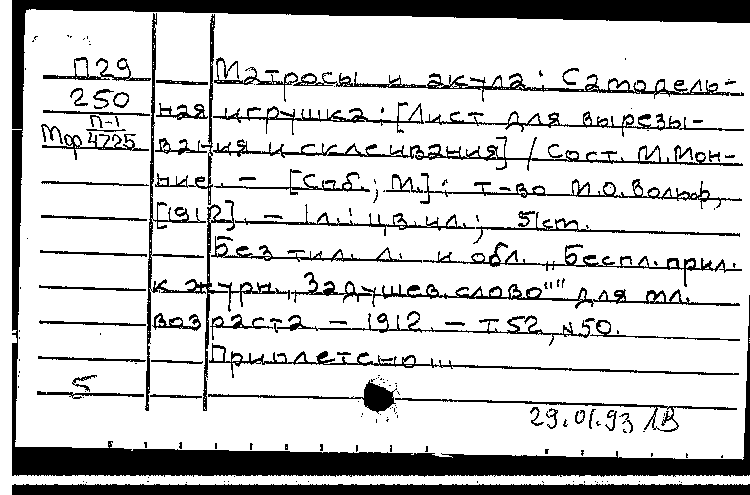 П29
250
Мор П-1/4725
Матросы и акула: Самодель-
ная игрушка: [Лист для вырезы-
вания и склеивания] / Сост. М. Мон-
ние. – [Спб.; М.]: т-во М.О. Вольф,
[1912]. – 1 л.: цв. ил.; 51 см.
Без тит. л. и обл. „Беспл. прил.
к журн. „Задушев. слово"" для мл.
возраста. – 1912. – Т. 52, № 50.
Приплетено...
5
29.01.93 ЛВ